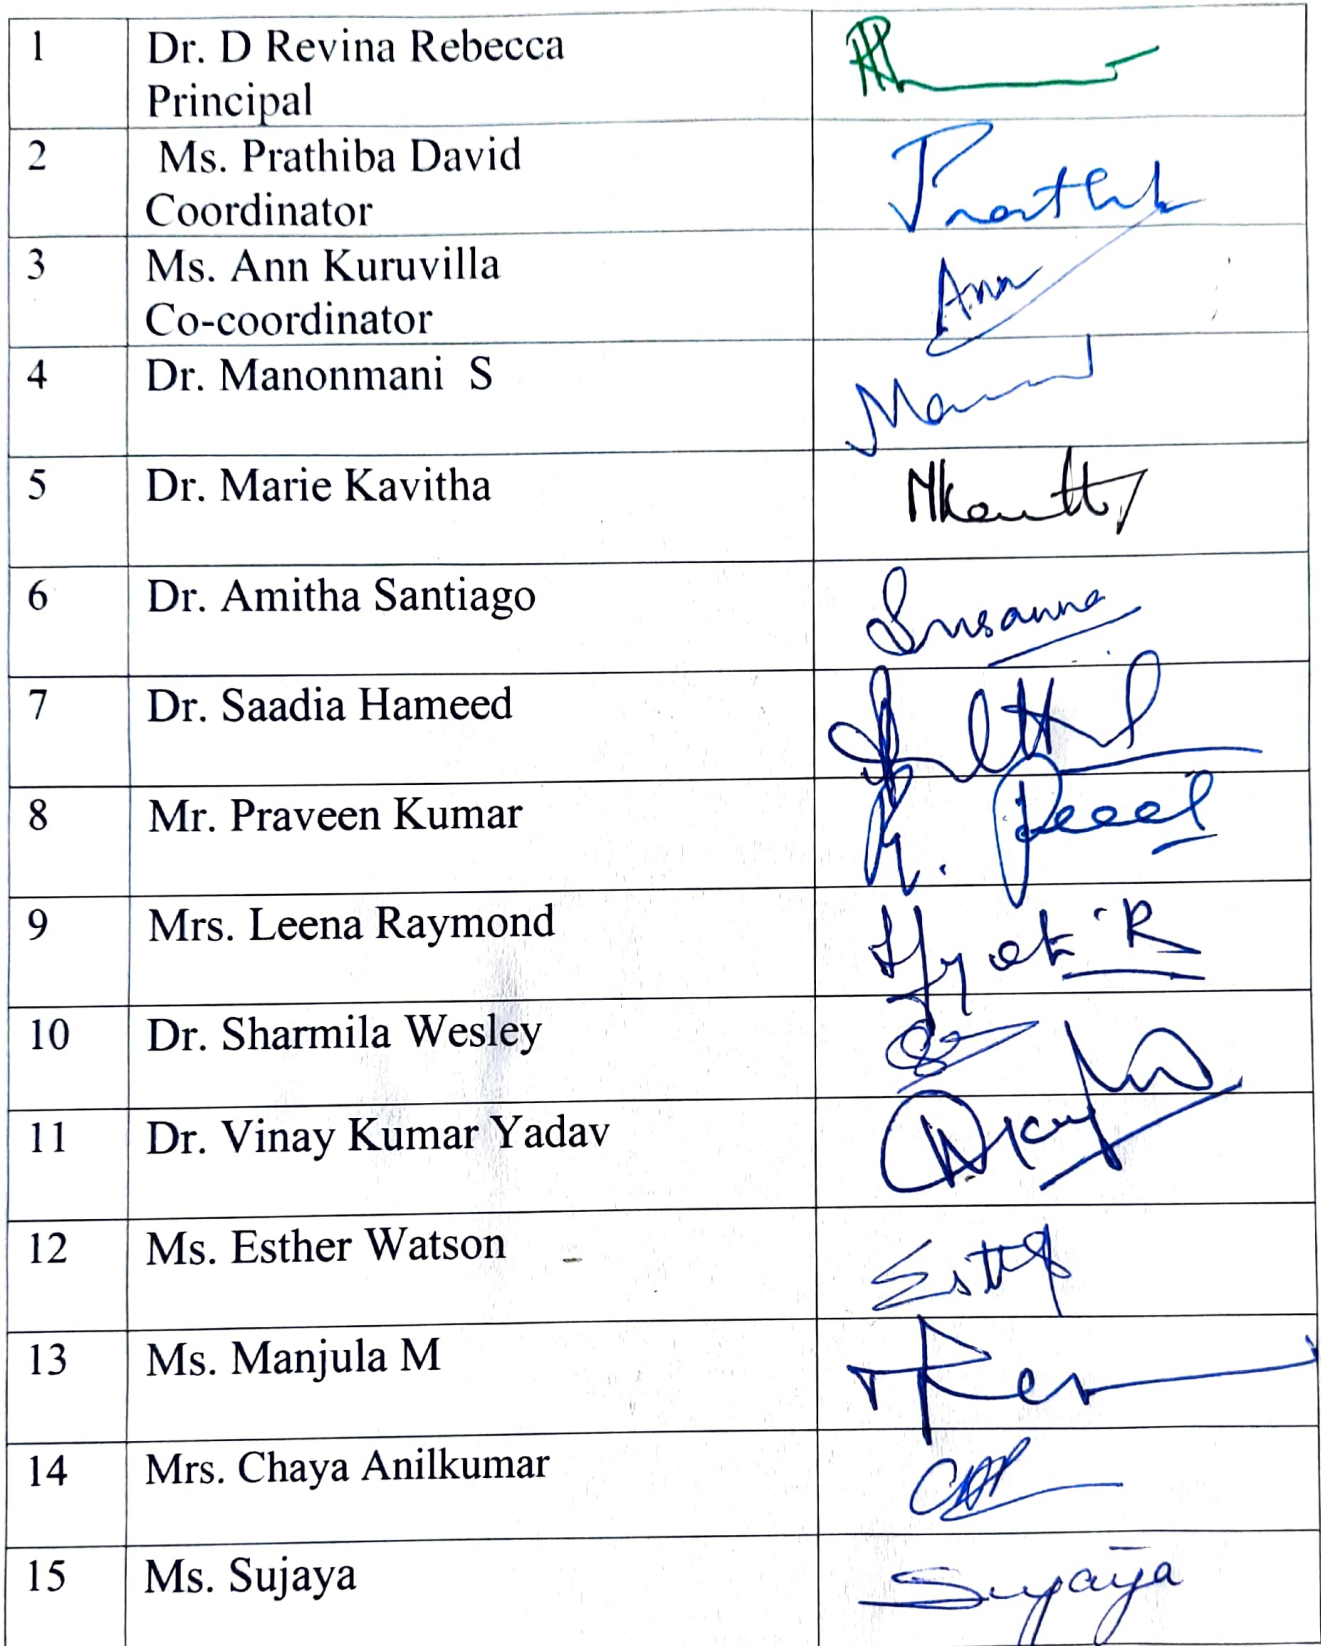 1 Dr. D Revina Rebecca
Principal
2 Ms. Prathiba David
Coordinator
3 Ms. Ann Kuruvilla Ann
Co-coordinator
4 Dr. Manonmani S
5 Dr. Marie Kavitha
6 Dr. Amitha Santiago Susanna
7 Dr. Saadia Hameed
8 Mr. Praveen Kumar
9 Mrs. Leena Raymond
10 Dr. Sharmila Wesley
11 Dr. Vinay Kumar Yadav
12 Ms. Esther Watson
13 Ms. Manjula M
14 Mrs. Chaya Anilkumar
15 Ms. Sujaya Sujaya